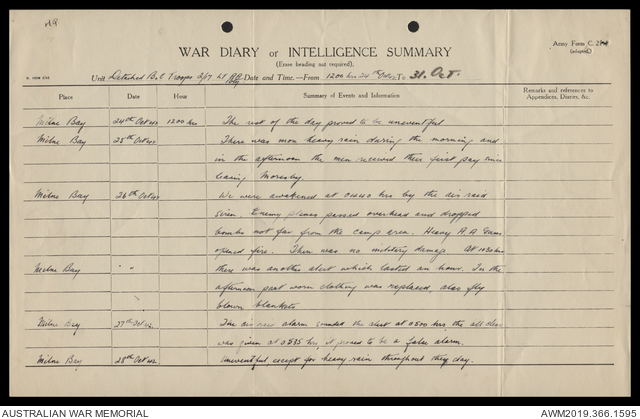 WAR DIARY or INTELLIGENCE SUMMARY
(Erase heading not required).
Army Form C. 2
(adapted)
Unit Detached B & C Troops 2/7 Lt Date and Time.—From 1200 hrs 24th To 31. Oct.
Place Date Hour Summary of Events and Information Remarks and references to Appendices, Diaries, &c.
Milne Bay 24th Oct 42 1200 hrs The rest of the day proved to be uneventful
Milne Bay 25th Oct 42 There was more heavy rain during the morning and
in the afternoon the men received their first pay since
leaving Moresby.
Milne Bay 26th Oct 42 We were awakened at 0440 hrs by the air raid
siren. Enemy planes passed overhead and dropped
bombs not far from the camp area. Heavy A.A. Guns
opened fire. There was no military damage. At 1030 hrs
Milne Bay " " there was another alert which lasted an hour. In the
afternoon past worn clothing was replaced, also fly
blown blankets
Milne Bay 27th Oct 42. The air raid alarm sounded the alert at 0500 hrs, the all clear
was given at 0535 hrs, it proved to be a false alarm.
Milne Bay 28th Oct 42. Uneventful except for heavy rain throughout the day.
AUSTRALIAN WAR MEMORIAL
AWM2019.366.1595